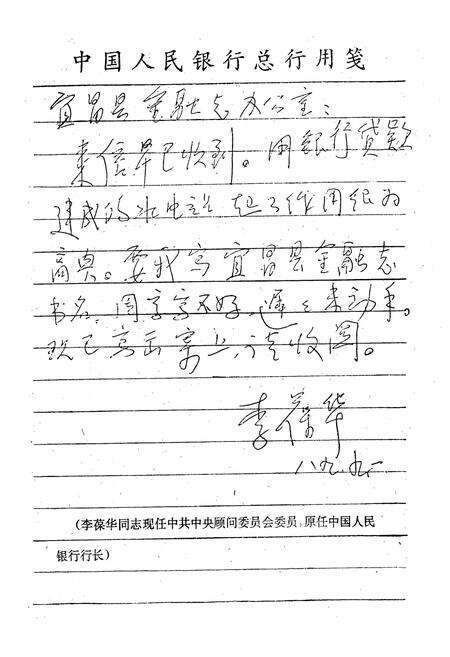 中国人民银行总行用笺
宜昌县金融志办公室：
来信早已收到。用银行贷款
建成的水电站起了作用很为
高兴。要我写宜昌县金融志
书名，因字写不好，迟迟未动手。
现已写出寄上，请收阅。
李葆华
八九、九、一
(李葆华同志现任中共中央顾问委员会委员，原任中国人民
银行行长)